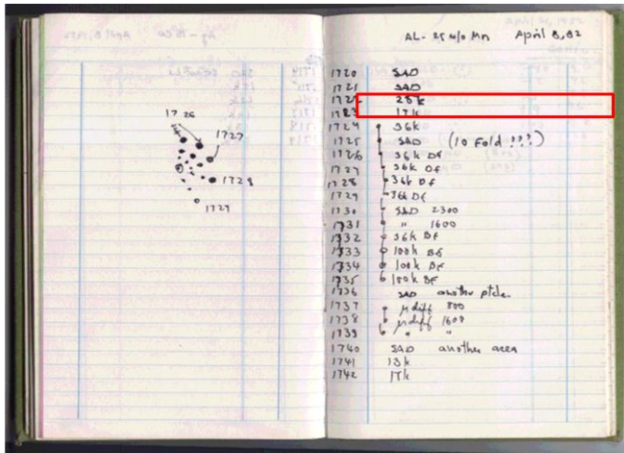 1726
1727
1728
1729
AL-25 w/o Mn April 8, 82
1720 SAD
1721 SAD
1722 25k
1723 17k
1724 36k
1725 SAD (10 Fold ???)
1726 36k DF
1727 36k DF
1728 36k DF
1729 36k DF
1730 SAD 2300
1731 " 1600
1732 36k BF
1733 100k BF
1734 100k BF
1735 100k BF
1736 SAD another ptcle.
1737 μdiff 800
1738 μdiff 1600
1739 " "
1740 SAD another area
1741 13k
1742 17k